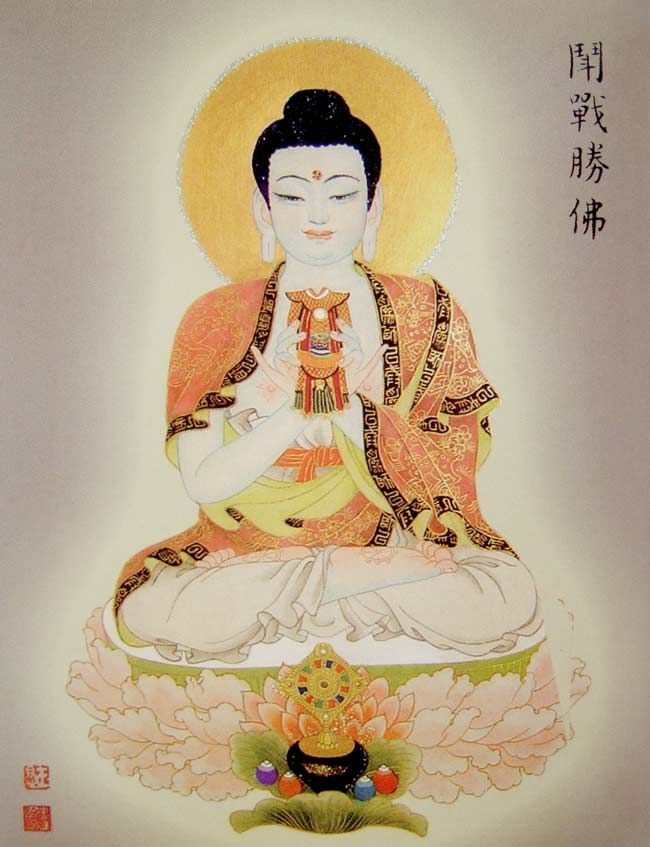 鬪戰勝佛